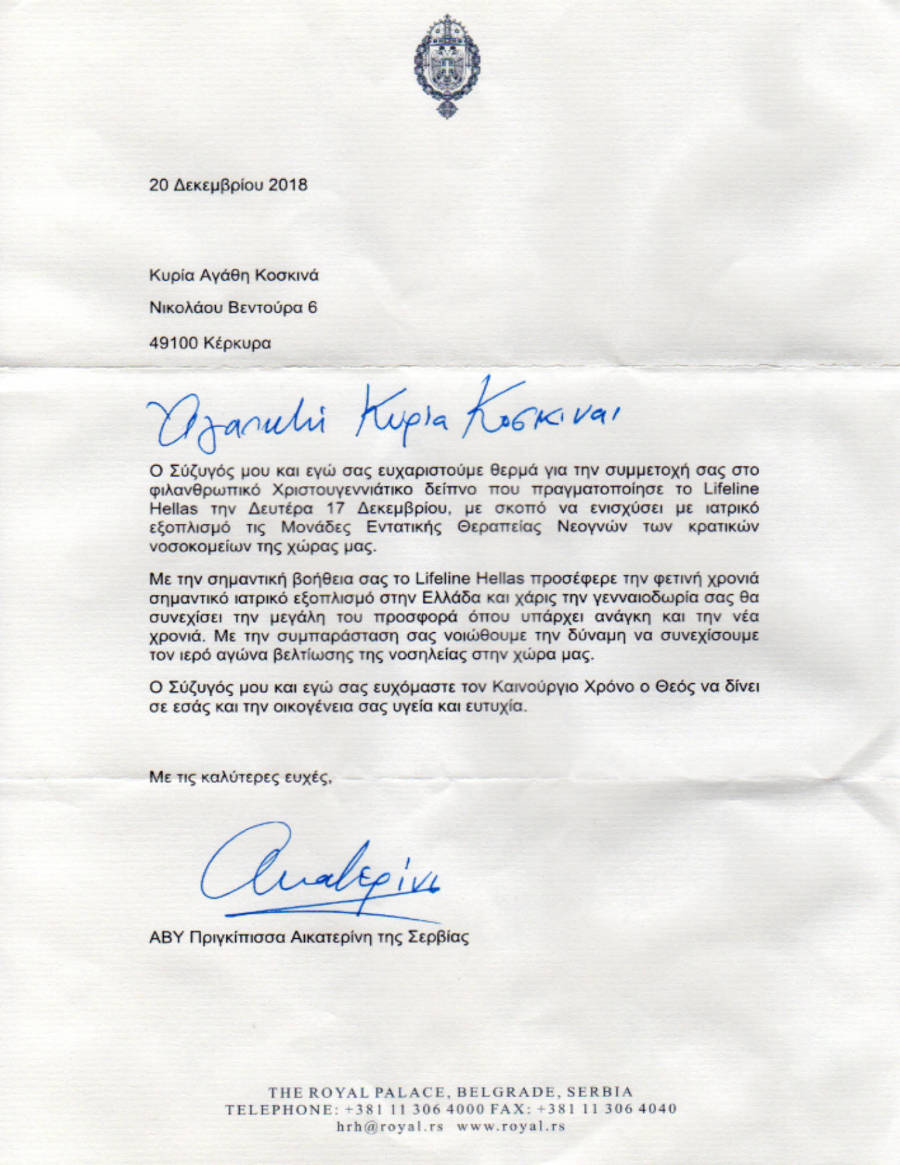 20 Δεκεμβρίου 2018
Κυρία Αγάθη Κοσκινά
Νικολάου Βεντούρα 6
49100 Κέρκυρα
Αγαπητή Κυρία Κοσκινά,
Ο Σύζυγός μου και εγώ σας ευχαριστούμε θερμά για την συμμετοχή σας στο
φιλανθρωπικό Χριστουγεννιάτικο δείπνο που πραγματοποίησε το Lifeline
Hellas την Δευτέρα 17 Δεκεμβρίου, με σκοπό να ενισχύσει με ιατρικό
εξοπλισμό τις Μονάδες Εντατικής Θεραπείας Νεογνών των κρατικών
νοσοκομείων της χώρας μας.
Με την σημαντική βοήθεια σας το Lifeline Hellas προσέφερε την φετινή χρονιά
σημαντικό ιατρικό εξοπλισμό στην Ελλάδα και χάρις την γενναιοδωρία σας θα
συνεχίσει την μεγάλη του προσφορά όπου υπάρχει ανάγκη και την νέα
χρονιά. Με την συμπαράσταση σας νοιώθουμε την δύναμη να συνεχίσουμε
τον ιερό αγώνα βελτίωσης της νοσηλείας στην χώρα μας.
Ο Σύζυγός μου και εγώ σας ευχόμαστε τον Καινούργιο Χρόνο ο Θεός να δίνει
σε εσάς και την οικογένεια σας υγεία και ευτυχία.
Με τις καλύτερες ευχές,
Αικατερίνη
ΑΒΥ Πριγκίπισσα Αικατερίνη της Σερβίας
THE ROYAL PALACE, BELGRADE, SERBIA
TELEPHONE: +381 11 306 4000 FAX: +381 11 306 4040
hrh@royal.rs www.royal.rs